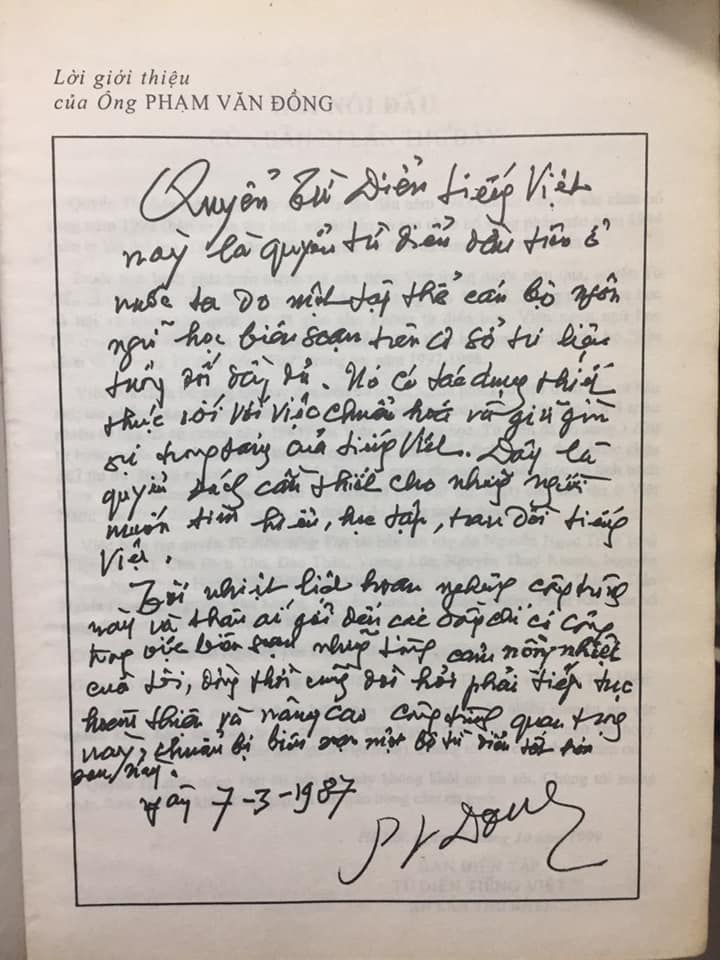 Lời giới thiệu
của Ông PHẠM VĂN ĐỒNG
Quyển Từ Điển tiếng Việt
này là quyển từ điển đầu tiên ở
nước ta do một tập thể cán bộ ngôn
ngữ học biên soạn trên cơ sở tư liệu
tương đối đầy đủ. Nó có tác dụng thiết
thực đối với việc chuẩn hoá và giữ gìn
sự trong sáng của tiếng Việt. Đây là
quyển sách cần thiết cho những người
muốn tìm hiểu, học tập, trau dồi tiếng
Việt.
Tôi nhiệt liệt hoan nghênh công trình
này và thân ái gửi đến các đồng chí có công
trong việc biên soạn những tình cảm nồng nhiệt
của tôi, đồng thời cũng đòi hỏi phải tiếp tục
hoàn thiện và nâng cao công trình quan trọng
này, chuẩn bị biên soạn một bộ từ điển tốt hơn
sau này.
ngày 7-3-1987
PVDong